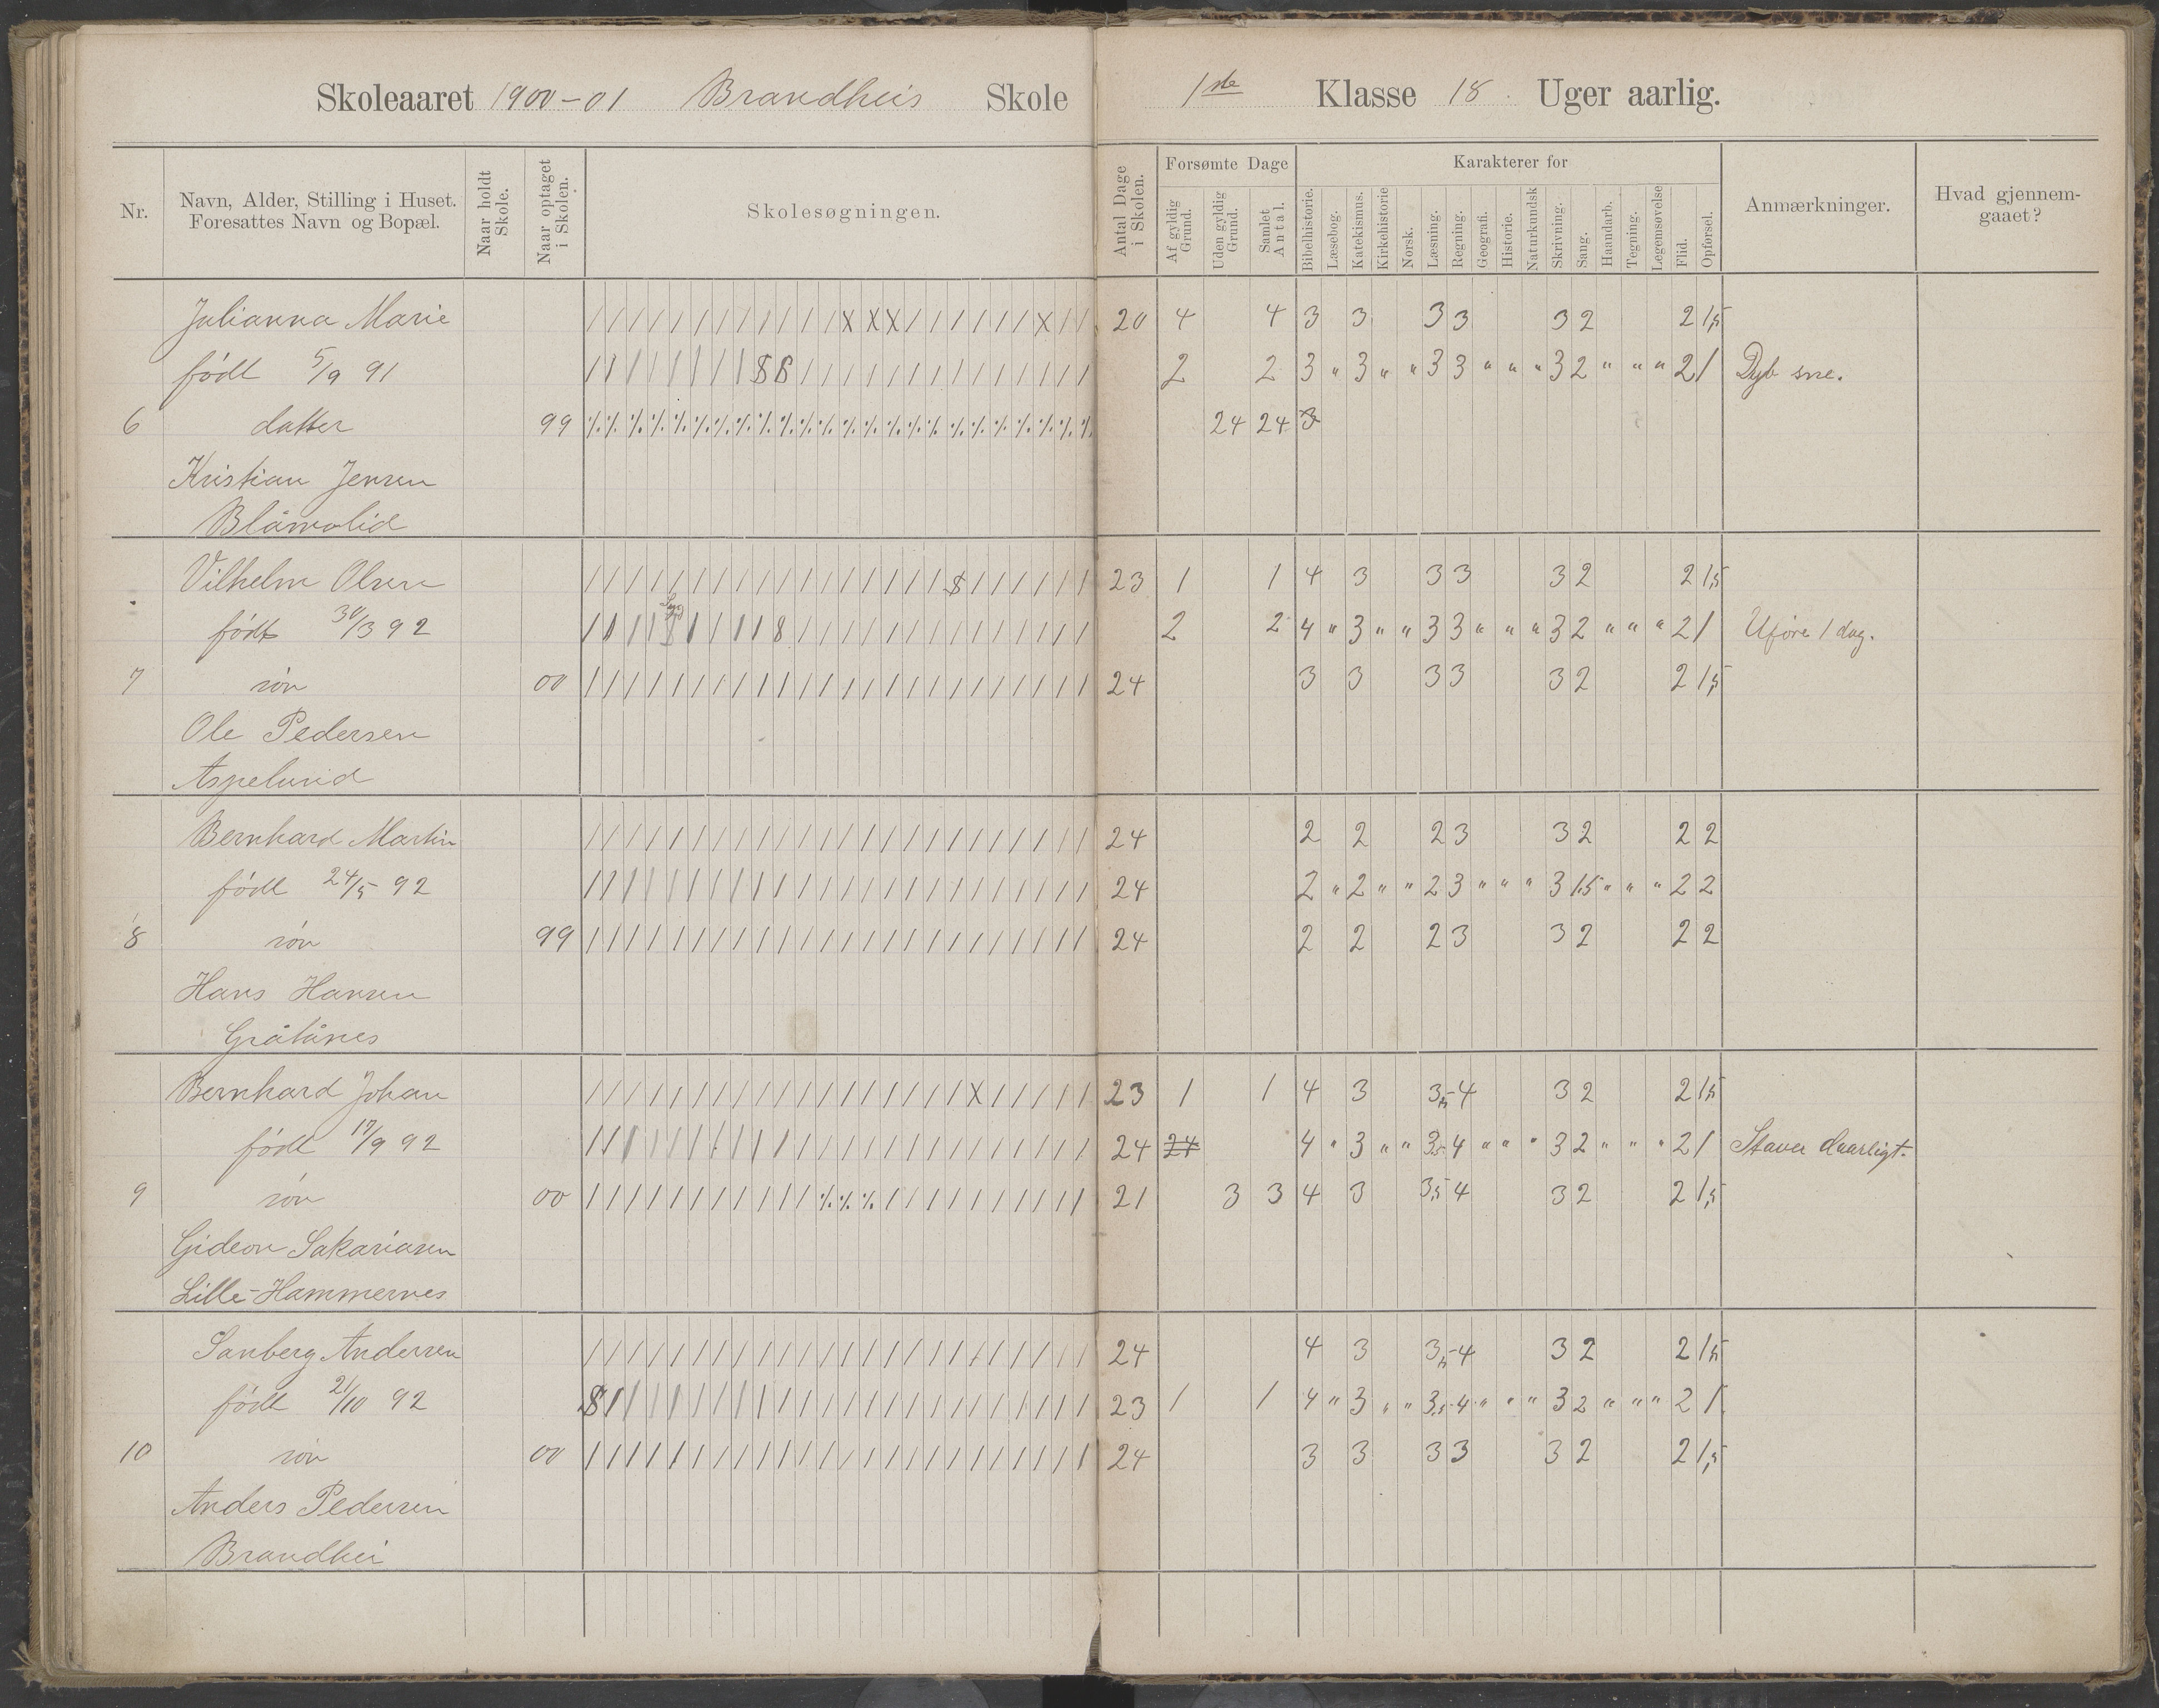 Skoleaaret 1900-01 Brandheis Skole 1ste Klasse 18 Uger aarlig.
Nr.
Navn, Alder, Stilling i Huset.
Foresattes Navn og Bopæl.
Naar holdt
Skole.
Naar optaget
i Skolen.
Skolesøgningen.
Antal Dage
i Skolen.
Forsømte Dage
Af gyldig
Grund.
Uden gyldig
Grund.
Samlet
Antal.
Karakterer for
Bibelhistorie.
Læsebog.
Katekismus.
Kirkehistorie
Norsk.
Læsning.
Regning.
Geografi.
Historie.
Naturkundsk
Skrivning.
Sang.
Haandarb.
Tegning.
Legemsøvelse
Flid.
Opførsel.
Anmærkninger.
Hvad gjennem-
gaaet?
Julianna Marie / / / / / / / / / / / / X X X / / / / / / X / / 20 4 4 3 3 3 3 3 2 2 1,5
født 5/9 91 / / / / / / / / 8 8 / / / / / / / / / / / / / / 2 2 3 " 3 " " 3 3 " " " 3 2 " " " 2 1 Dyb sne.
6 datter 99 % % % % % % % % % % % % % % % % % % % % % % % % 24 24 3
Kristian Jensen
Vilhelm Olsen / / / / / / / / / / / / / / / / / 8 / / / / / / 23 1 1 4 3 3 3 3 2 2 1,5
født 30/3 92 / / / / 8 / / / / 8 / / / / / / / / / / / / / / 2 2 4 " 3 " " 3 3 " " " 3 2 " " " 2 1 Uføre 1 dag.
7 søn 00 / / / / / / / / / / / / / / / / / / / / / / / / 24 3 3 3 3 3 2 2 1,5
Ole Pedersen
Aspelund
Bernhard Martin / / / / / / / / / / / / / / / / / / / / / / / / 24 2 2 2 3 3 2 2 2
født 24/5 92 / / / / / / / / / / / / / / / / / / / / / / / / 24 2 " 2 " " 2 3 " " " 3 1.5 " " " 2 2
8 søn 99 / / / / / / / / / / / / / / / / / / / / / / / / 24 2 2 2 3 3 2 2 2
Hans Hansen
Gråtånes
Bernhard Johan / / / / / / / / / / / / / / / / / / X / / / / / 23 1 1 4 3 3,5 4 3 2 2 1,5
født 17/9 92 / / / / / / / / / / / / / / / / / / / / / / / / 24 24 4 " 3 " " 3,5 4 " " " 3 2 " " " 2 1 Staver daarligt.
9 søn 00 / / / / / / / / / / / % % % / / / / / / / / / / 21 3 3 4 3 3,5 4 3 2 2 1,5
Gideon Sakariasen
Lille-Hammernes
Sanberg Andersen / / / / / / / / / / / / / / / / / / / / / / / / 24 4 3 3,5 4 3 2 2 1,5
født 21/10 92 8 / / / / / / / / / / / / / / / / / / / / / / / 23 1 1 4 " 3 " " 3,5 4 " " " 3 2 " " " 2 1
10 søn 00 / / / / / / / / / / / / / / / / / / / / / / / / 24 3 3 3 3 3 2 2 1,5
Anders Pedersen
Brandhei